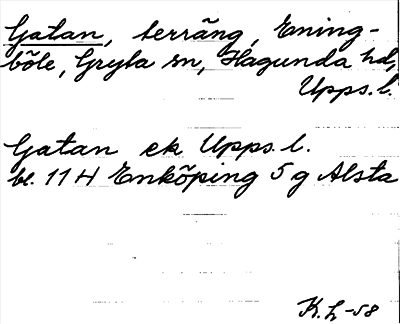 Gatan, terräng, Ening-
böle, Gryta sn, Hagunda hd,
Upps. l.
Gatan ek Upps. l.
bl. 11 H Enköping 5 g Alsta
K. L -58